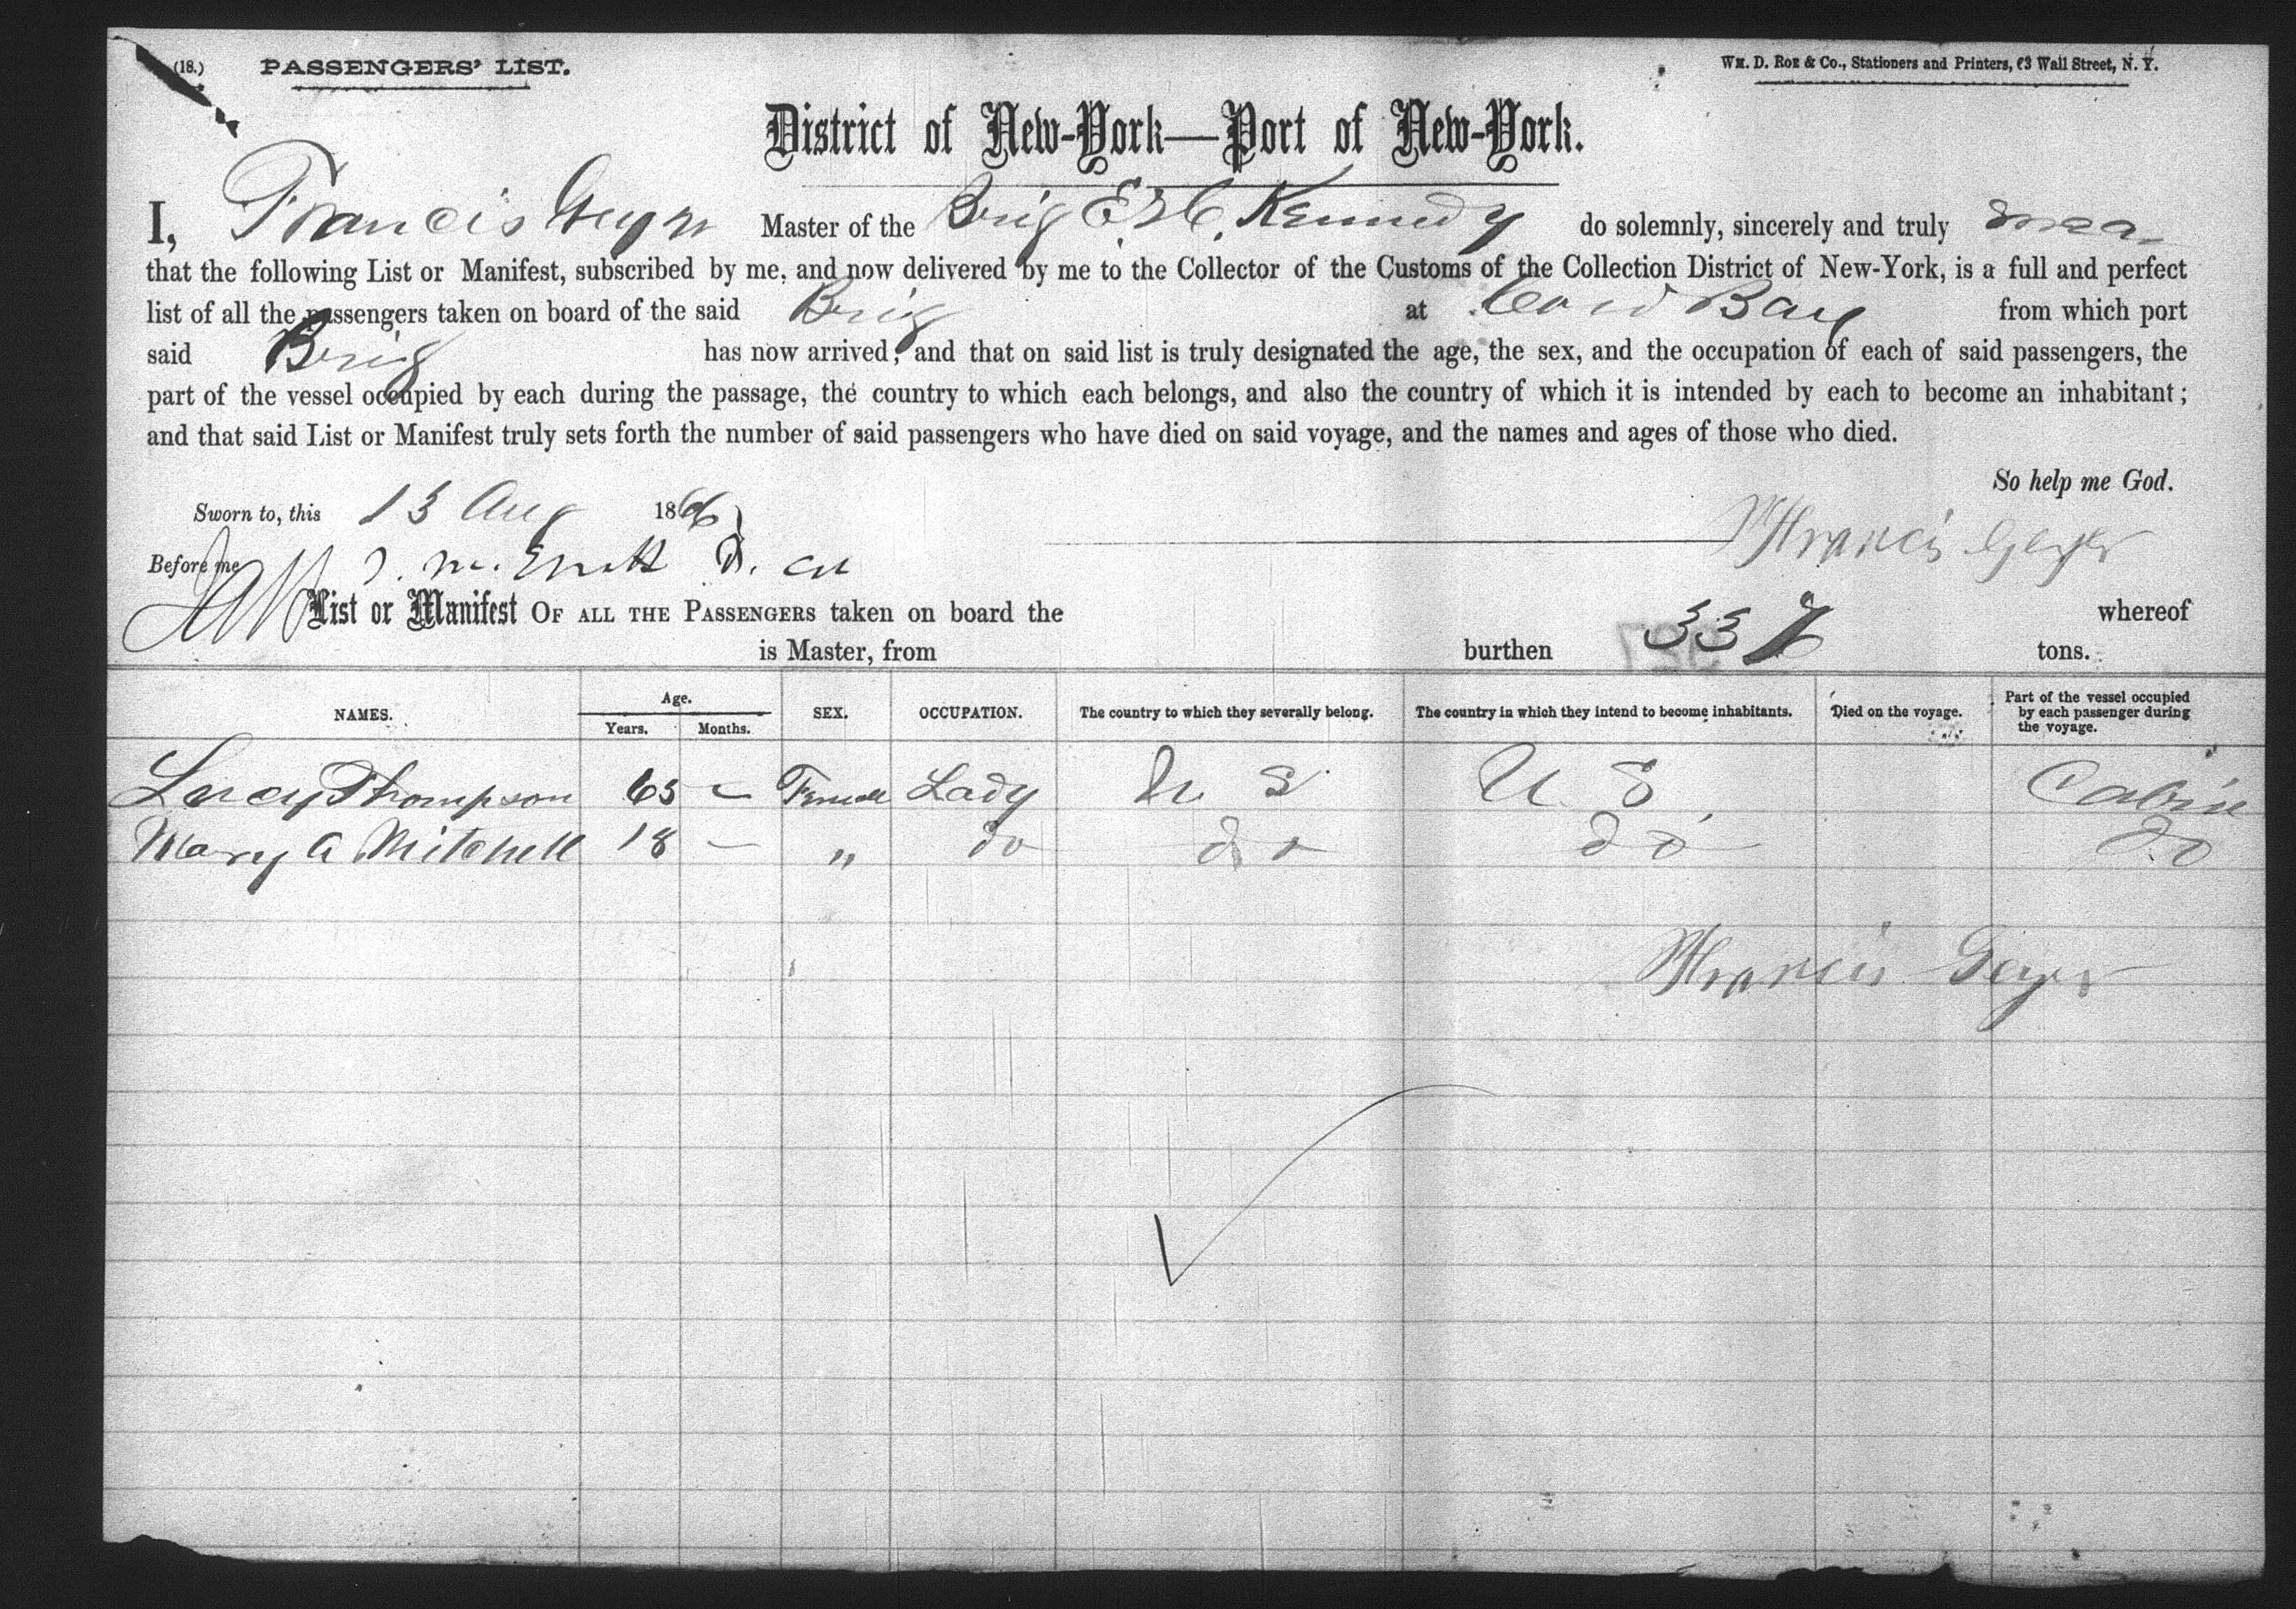 (18.) PASSENGERS' LIST.
WM. D. ROE & Co., Stationers and Printers, 63 Wall Street, N. Y.
District of New-York—Port of New-York.
I, Francis Geyer Master of the Brig E. H. Kennedy do solemnly, sincerely and truly swear
that the following List or Manifest, subscribed by me, and now delivered by me to the Collector of the Customs of the Collection District of New-York, is a full and perfect
list of all the passengers taken on board of the said Brig at Cow Bay from which port
said Brig has now arrived; and that on said list is truly designated the age, the sex, and the occupation of each of said passengers, the
part of the vessel occupied by each during the passage, the country to which each belongs, and also the country of which it is intended by each to become an inhabitant;
and that said List or Manifest truly sets forth the number of said passengers who have died on said voyage, and the names and ages of those who died.
So help me God.
Sworn to, this 13 Aug 1866
Francis Geyer
Before me
List or Manifest OF ALL THE PASSENGERS taken on board the whereof
is Master, from burthen 337 tons.
NAMES. Age. Years. Months. SEX. OCCUPATION. The country to which they severally belong. The country in which they intend to become inhabitants. Died on the voyage. Part of the vessel occupied by each passenger during the voyage.
Lucy Thompson 65 — Female Lady U S U S Cabin
Mary A Mitchell 18 — " do do do do
Francis Geyer